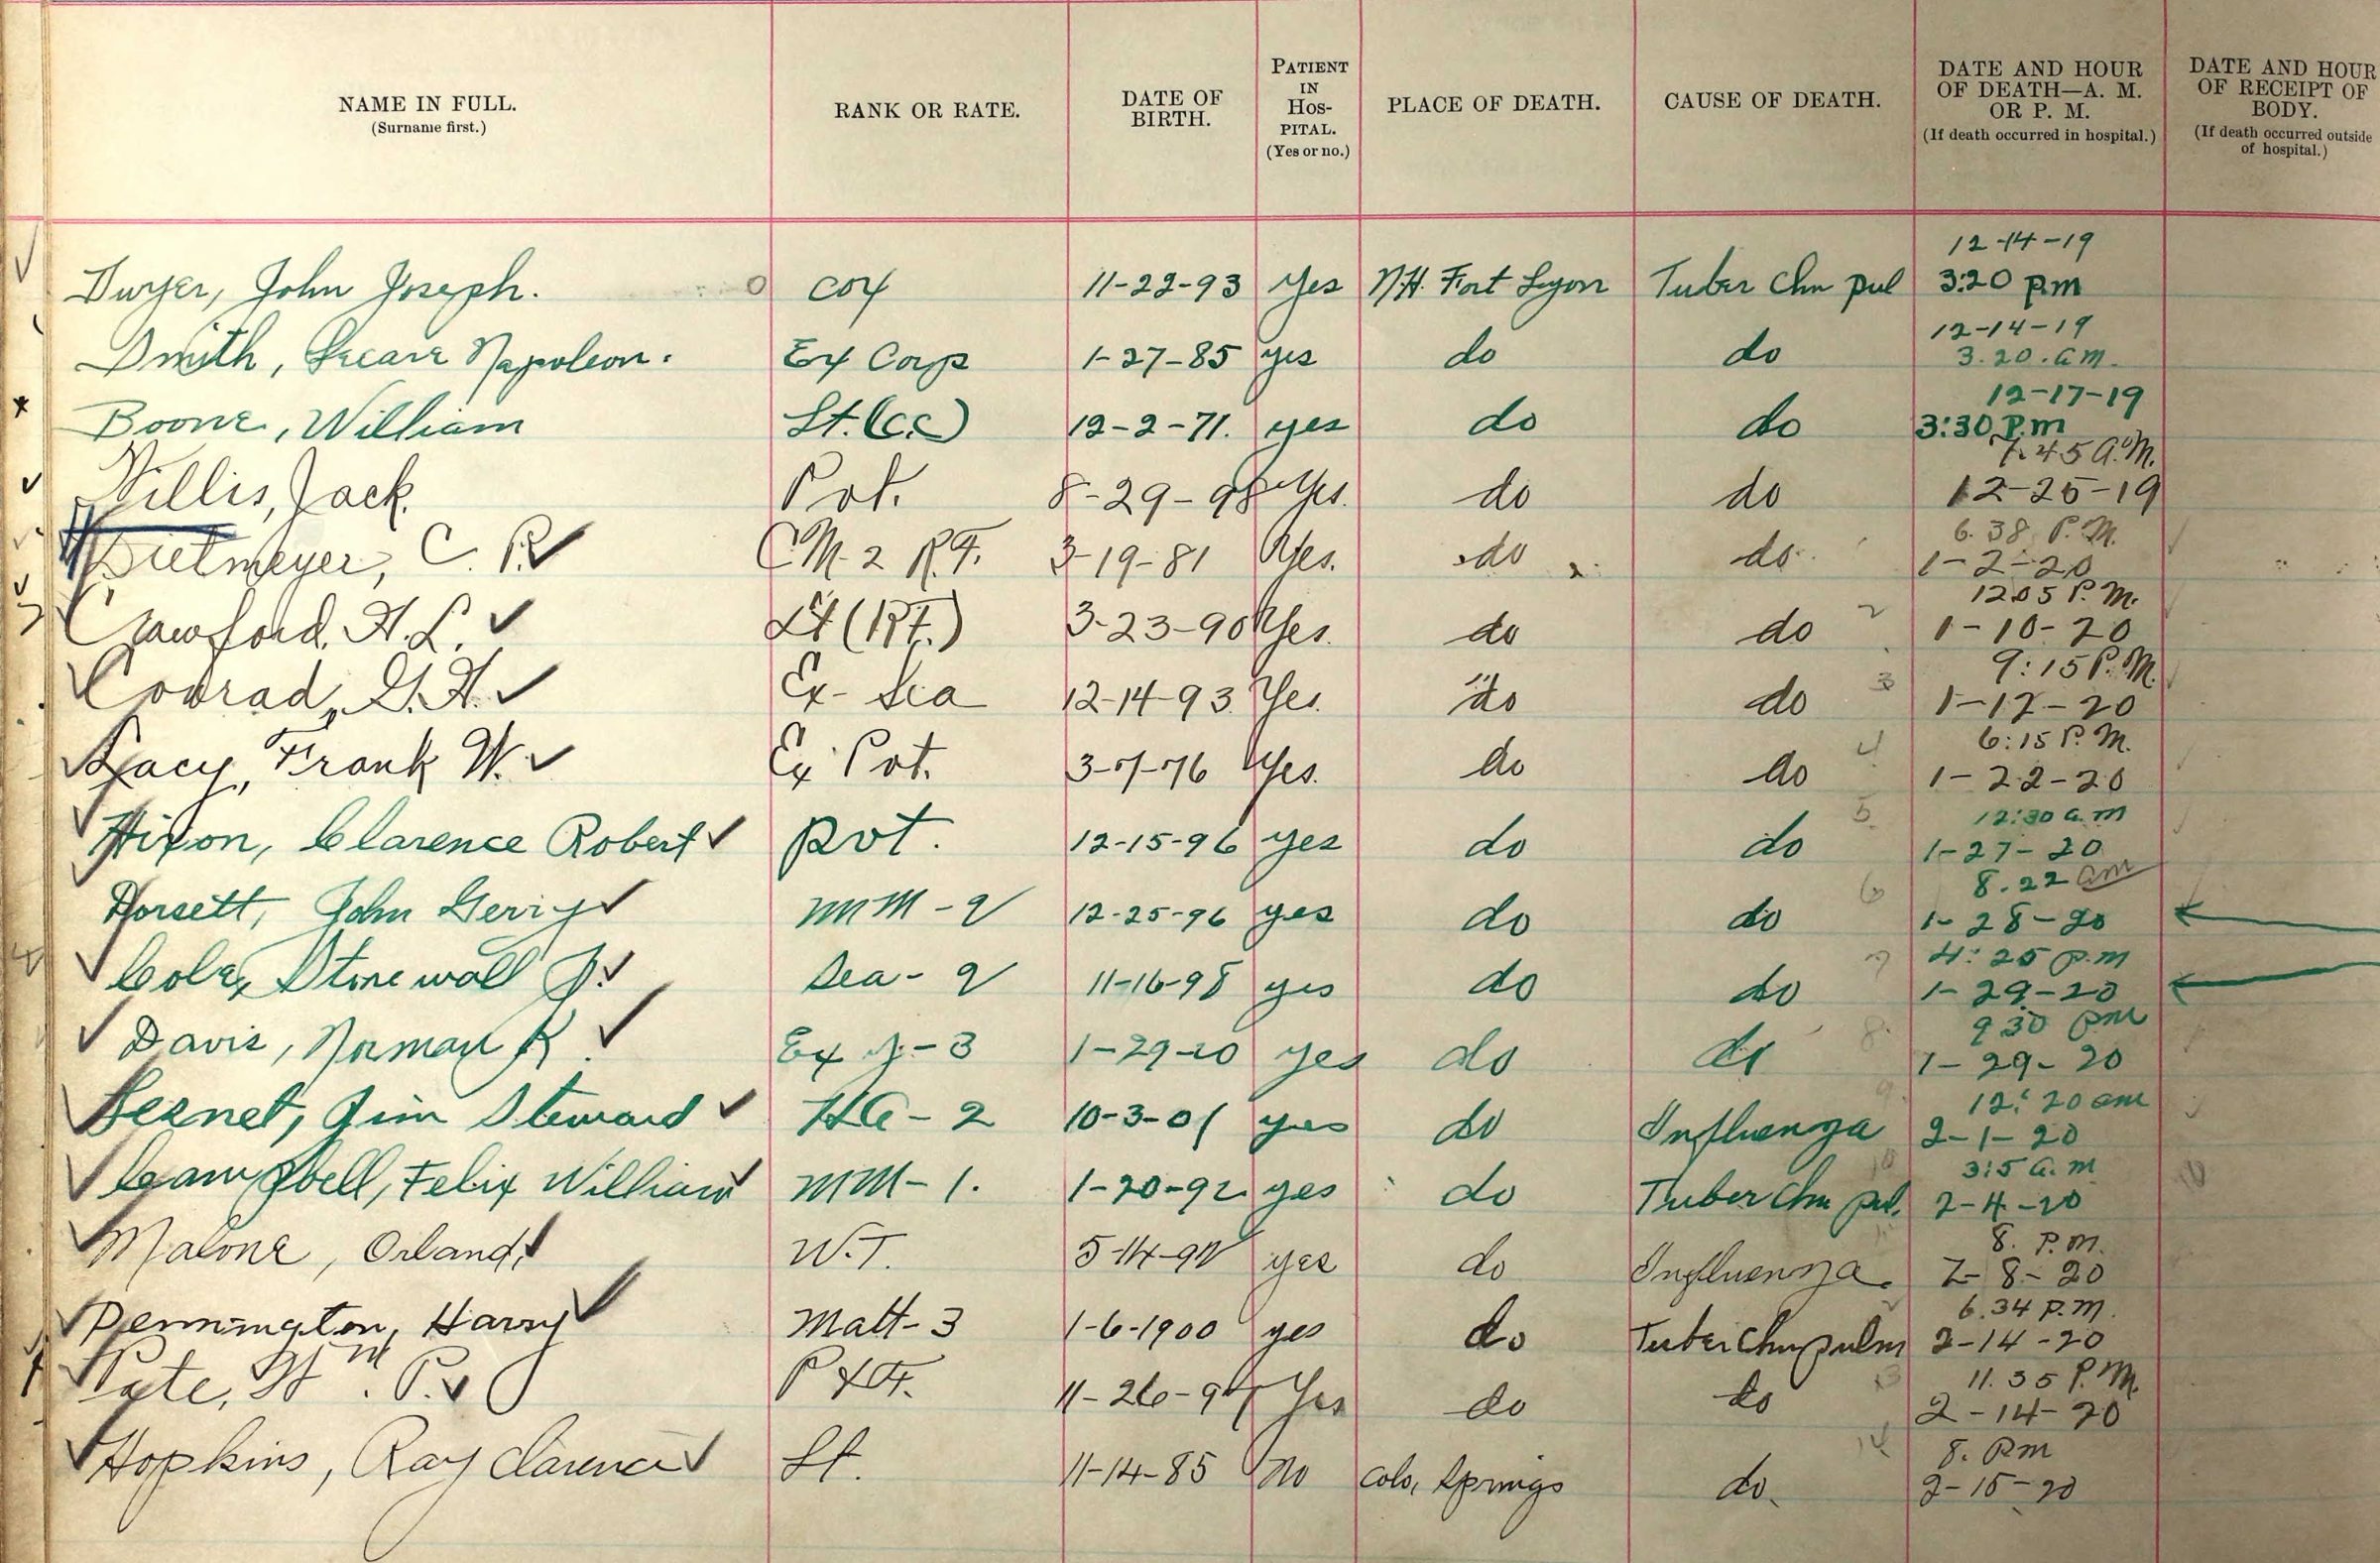 NAME IN FULL.
(Surname first.)
RANK OR RATE.
DATE OF BIRTH.
PATIENT IN HOSPITAL.
(Yes or no.)
PLACE OF DEATH.
CAUSE OF DEATH.
DATE AND HOUR OF DEATH—A. M. OR P. M.
(If death occurred in hospital.)
DATE AND HOUR OF RECEIPT OF BODY.
(If death occurred outside of hospital.)
12-14-19
Dwyer, John Joseph. cox 11-22-93 Yes N.H. Fort Lyon Tuber Chr pul 3:20 p.m
12-14-19
Smith, Napoleon. Ex Corp 1-27-85 yes do do 3.20.am.
12-17-19
Boone, William Lt. (cc) 12-2-71. yes do do 3:30 P.m
7.45 A.M.
Willis, Jack Pvt. 8-29-98 Yes. do do 12-25-19
6.38 P.M.
C. R. C.M. 2 R.F. 3-19-81 Yes. do do 1-2-20
1205 P.M.
Crawford, H. L. Lt (RF.) 3-23-90 Yes. do do 2 1-10-20
9:15 P.M.
Conrad, G. H. Ex-Sea 12-14-93 Yes. do do 3 1-17-20
6:15 P.M.
Lacy, Frank W. Ex Pvt. 3-7-76 Yes. do do 4 1-22-20
12:30 a.m
Hixon, Clarence Robert Pvt. 12-15-96 yes do do 5 1-27-20
8.22 am
Horsett, John Gerry MM-2 12-25-96 yes do do 6 1-28-20
4:25 p.m
Cole, Stonewall J. Sea-2 11-16-98 yes do do 7 1-29-20
930 pm
Davis, Norman K Ex 3 1-29-20 yes do do 8. 1-29-20
12:20 am
Jim Steward HA-2 10-3-01 yes do Influenza 9 2-1-20
3:5 a.m
Campbell, Felix William MM-1. 1-20-92 yes do Tuber Chr pul. 10 2-4-20
8. P.M.
Malone, Orland W.T. 5-14-9 yes do Influenza. 2-8-20
6.34 P.M.
Pennington, Harry Matt-3 1-6-1900 yes do Tuber Chr pulm 2-14-20
11.35 P.M.
Pate, Wm. P. 11-26-9 Yes do do 13 2-14-20
8. Pm
Hopkins, Ray Clarence Lt. 11-14-85 No Colo, Springs do. 14 2-15-20